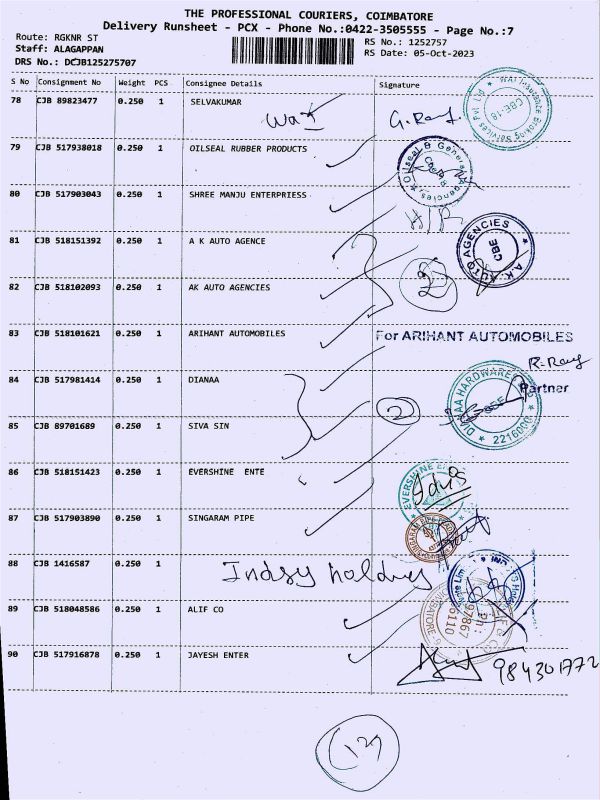 THE PROFESSIONAL COURIERS, COIMBATORE
Delivery Runsheet - PCX - Phone No.:0422-3505555 - Page No.:7
Route: RGKNR ST
RS No.: 1252757
Staff: ALAGAPPAN
RS Date: 05-Oct-2023
DRS No.: DCJB125275707
S No Consignment No Weight PCS Consignee Details Signature
78 CJB 89823477 0.250 1 SELVAKUMAR
79 CJB 517938018 0.250 1 OILSEAL RUBBER PRODUCTS
Oilseal & General Agencies
80 CJB 517903043 0.250 1 SHREE MANJU ENTERPRIESS
81 CJB 518151392 0.250 1 A K AUTO AGENCE
A.K. AUTO AGENCIES CBE
82 CJB 518102093 0.250 1 AK AUTO AGENCIES
2
83 CJB 518101621 0.250 1 ARIHANT AUTOMOBILES
For ARIHANT AUTOMOBILES
Partner
84 CJB 517981414 0.250 1 DIANAA
DIANAA HARDWARE
2216000
2
85 CJB 89701689 0.250 1 SIVA SIN
86 CJB 518151423 0.250 1 EVERSHINE ENTE
EVERSHINE
87 CJB 517903890 0.250 1 SINGARAM PIPE
SINGARAM PIPE
88 CJB 1416587 0.250 1
89 CJB 518048586 0.250 1 ALIF CO
Ph: 97867
90 CJB 517916878 0.250 1 JAYESH ENTER
984301772
129